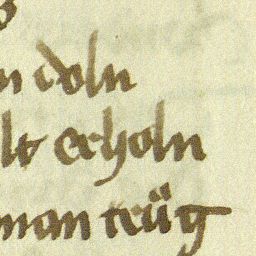 n doln
lt erholn
man trüg